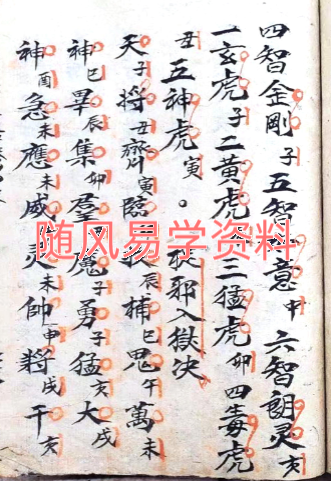 四智金剛子五智如意申六智朗灵亥
一玄虎子二黃虎 三猛虎卯四毒虎
丑五神虎寅。 捉邪入獄决
天子將丑齊寅臨 辰捕巳鬼午萬未
神巳畢辰集卯群 魔子勇子猛亥大戌
神酉急未應未威 灵未帥申將戌千亥
随风易学资料